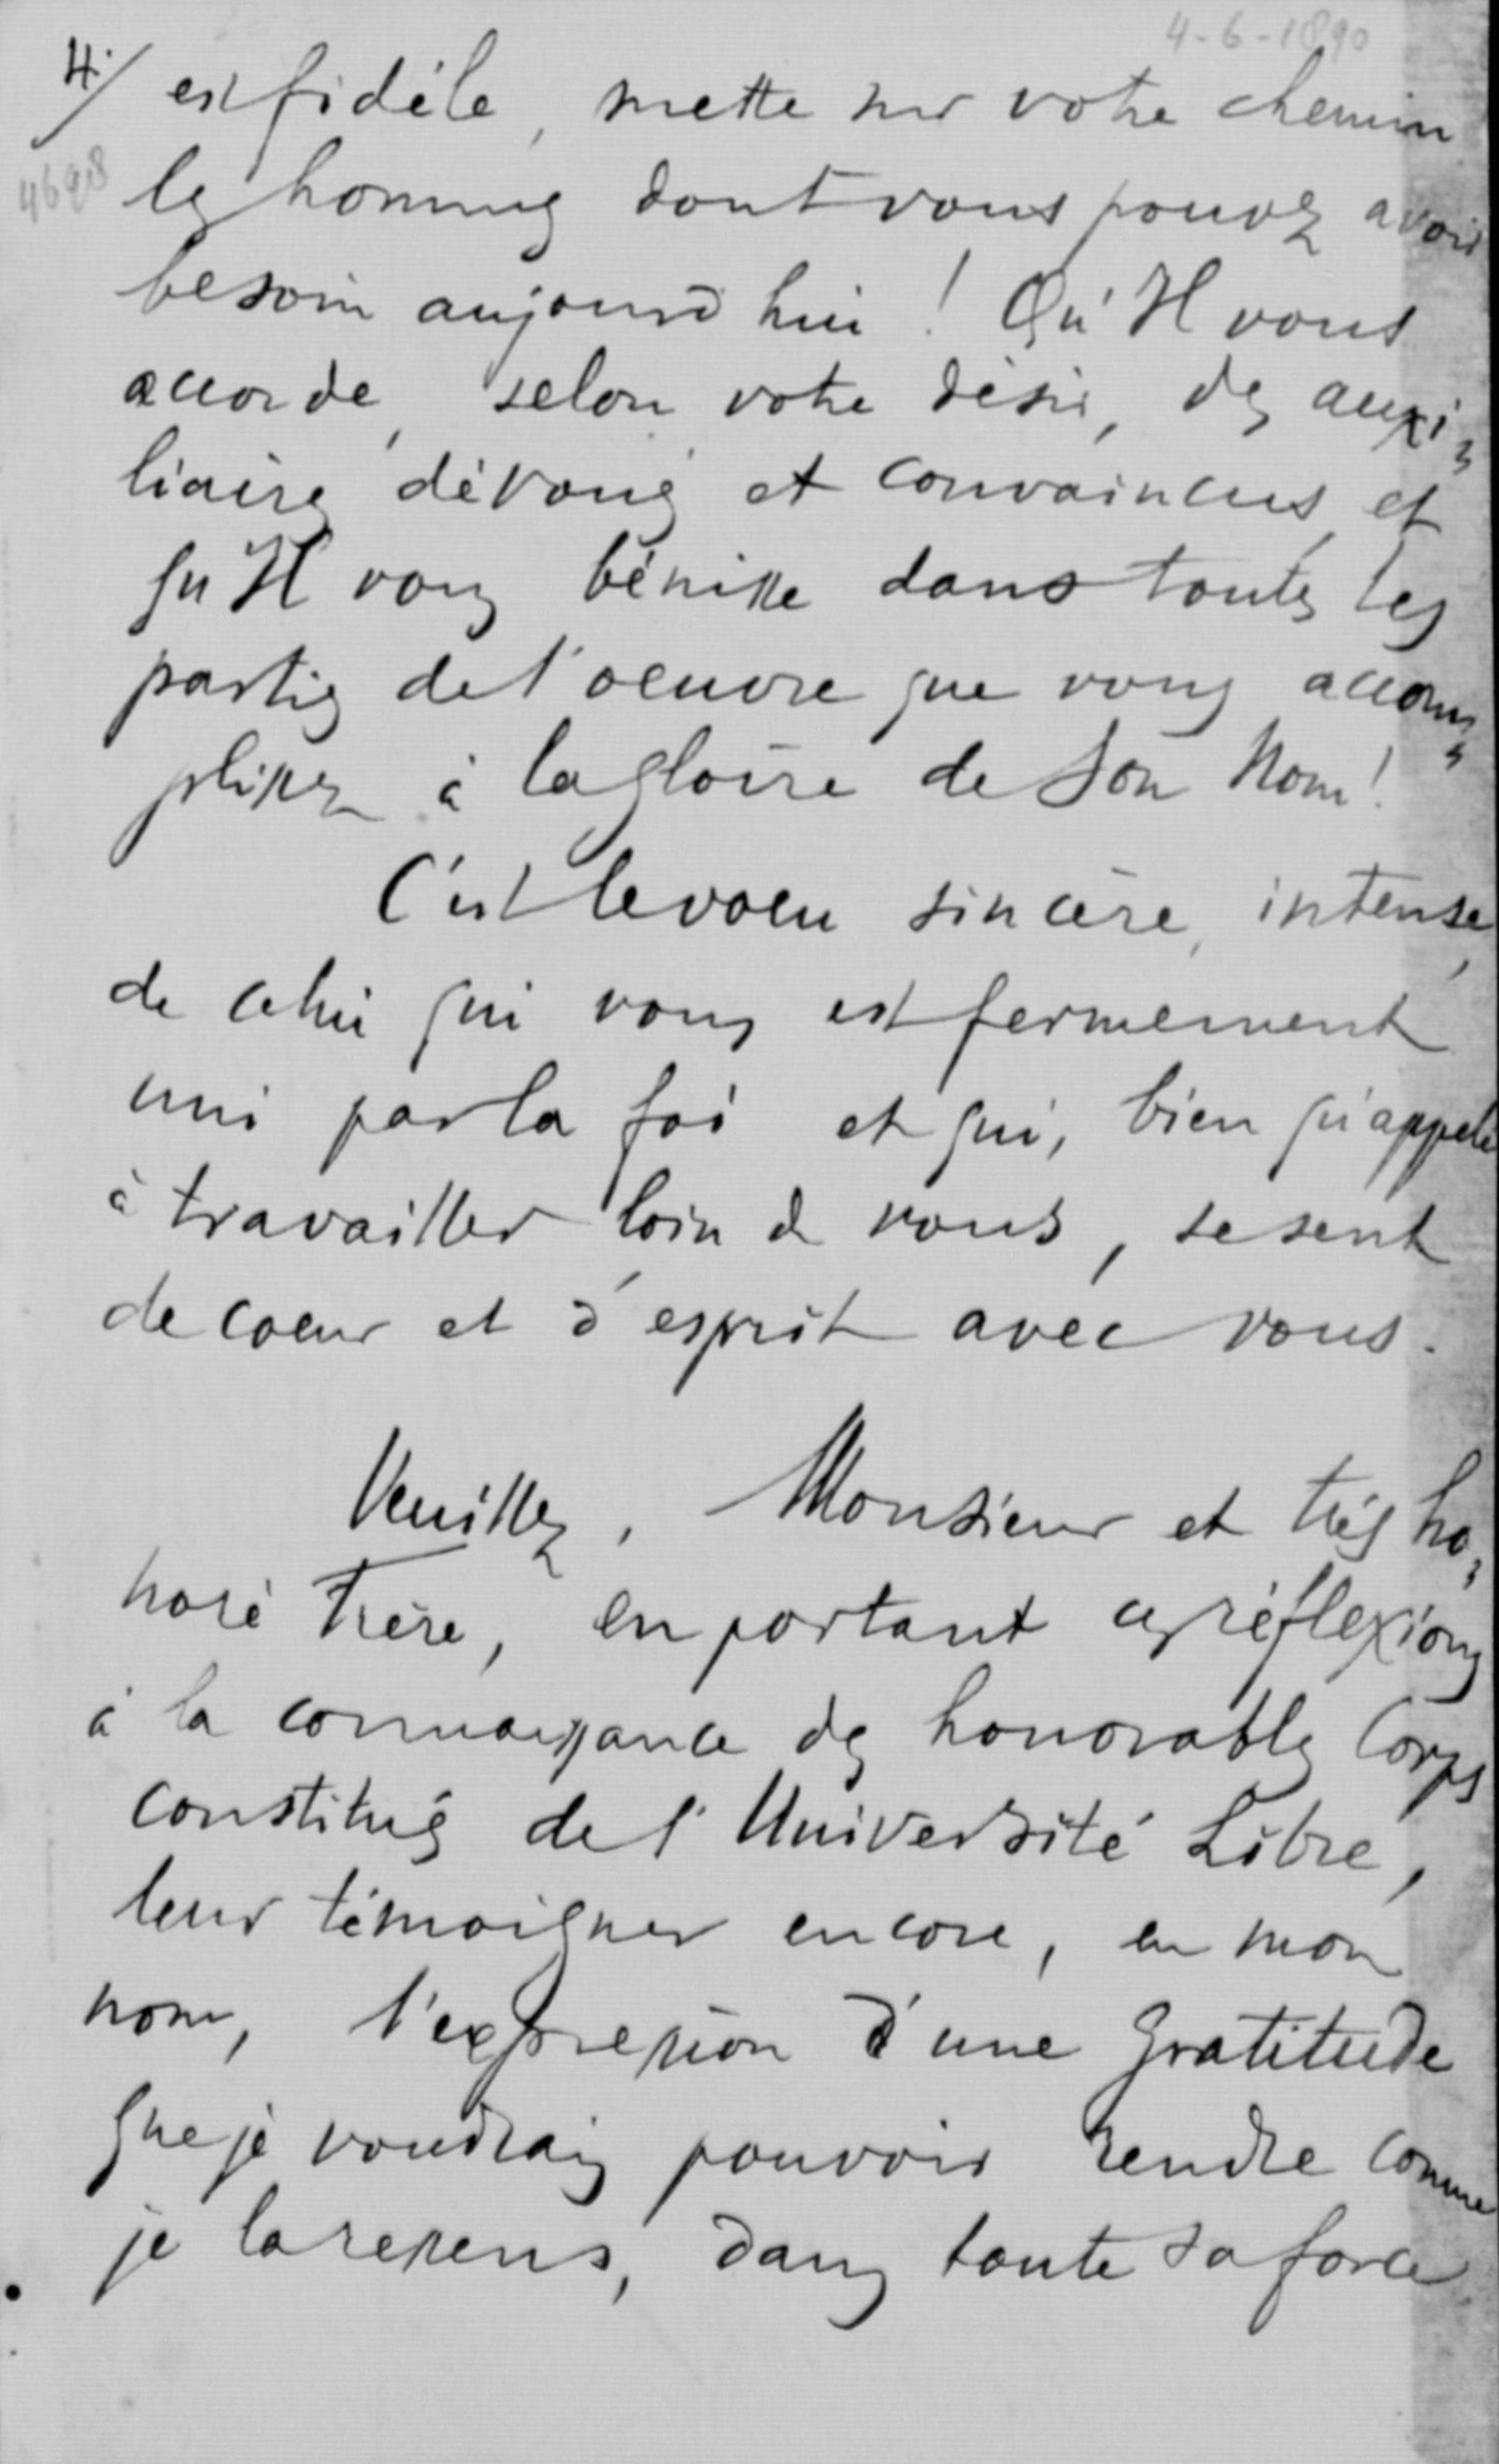 4-6-1890
4./ est fidèle, mette sur votre chemin
4698
les hommes dont vous pouvez avoir
besoin aujourd'hui ! Qu'Il vous
accorde, selon votre désir, des auxi-
liaires dévoués et convaincus, et
qu'Il vous bénisse dans toutes les
parties de l'oeuvre que vous accom-
plissez à la gloire de Son Nom !
C'est le voeu sincère, intense,
de celui qui vous est fermement
uni par la foi et qui, bien qu'appelé
à travailler loin de vous, se sent
de coeur et d'esprit avec vous.
Veuillez, Monsieur et très ho-
noré Frère, en portant ces réflexions
à la connaissance des honorables Corps
constitués de l'Université Libre,
leur témoigner encore, en mon
nom, l'expression d'une gratitude
que je voudrais pouvoir rendre comme
je la ressens, dans toute sa force